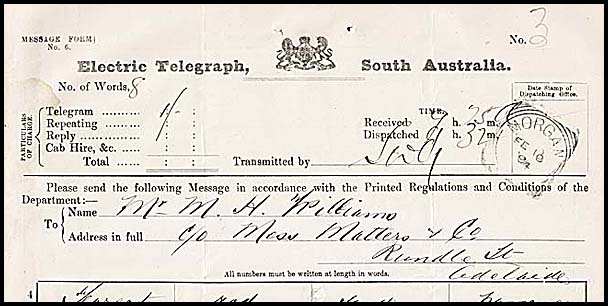 MESSAGE FORM
No. 6.
No. 3
Electric Telegraph, South Australia.
No. of Words, 8
Date Stamp of
Dispatching Office.
PARTICULARS
OF CHARGE.
Telegram 1/-
Repeating
Reply
Cab Hire, &c.
Total
TIME.
Received h. 25 m.
Dispatched 9 h. 32 m.
Transmitted by
MORGAN
FE 18
84
Please send the following Message in accordance with the Printed Regulations and Conditions of the
Department:—
To
Name Mr M. H. Williams
Address in full c/o Mess Matters & Co
Rundle St
Adelaide
All numbers must be written at length in words.